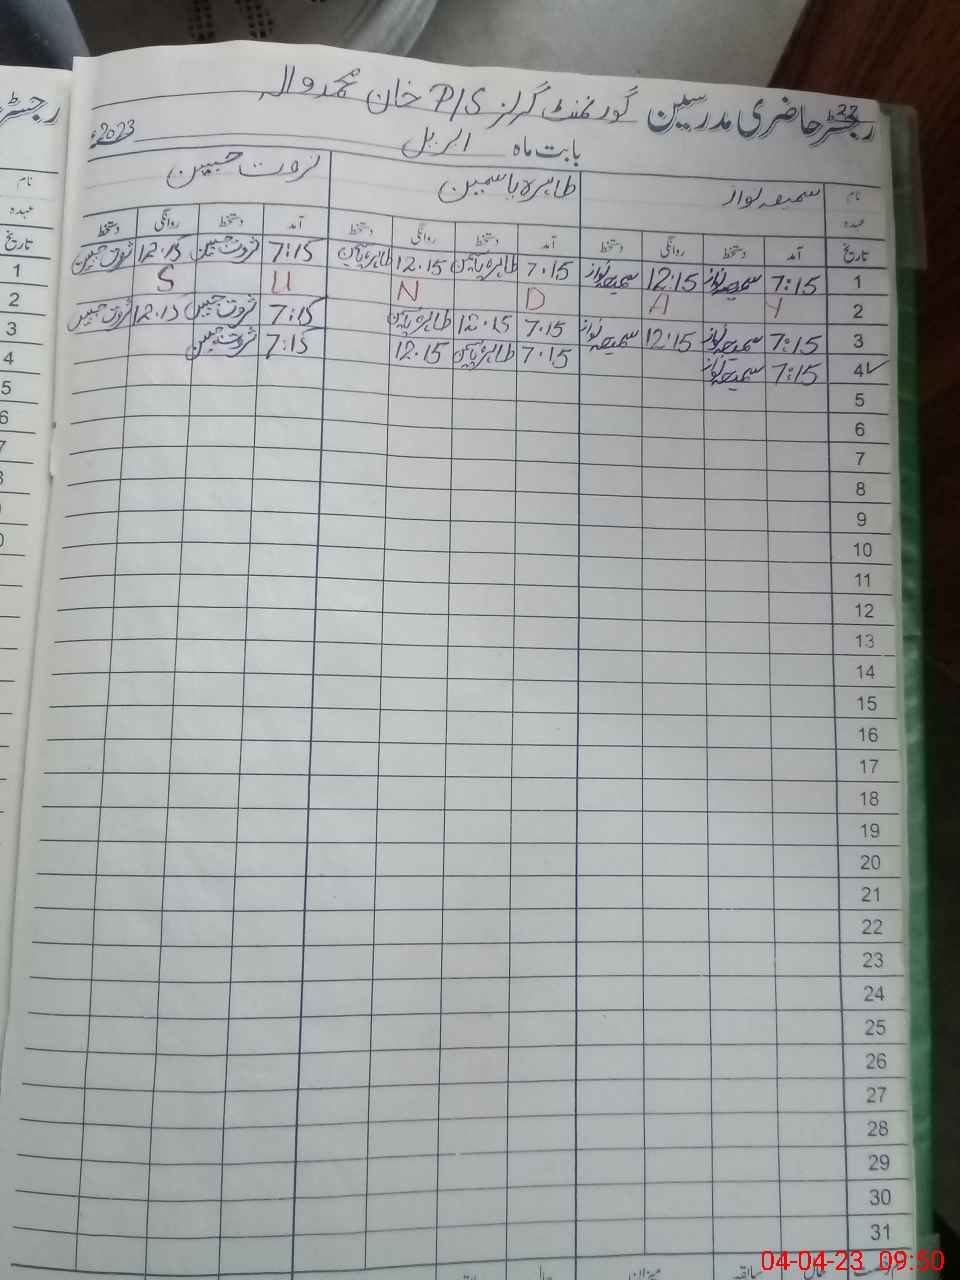 رجسٹر حاضری مدرسین گورنمنٹ گرلز P/S خان محمد والہ
22
بابت ماہ اپریل 2023ء
نام سمیعہ نواز طاہرہ یاسمین ثروت جبین
عہدہ
تاریخ آمد دستخط روانگی دستخط آمد دستخط روانگی دستخط آمد دستخط روانگی دستخط
1 7:15 سمیعہ نواز 12:15 سمیعہ نواز 7.15 طاہرہ یاسمین 12.15 طاہرہ یاسمین 7:15 ثروت جبین 12:15 ثروت جبین
2 S U N D A Y
3 7:15 سمیعہ نواز 12:15 سمیعہ نواز 7.15 12.15 طاہرہ یاسمین 7:15 ثروت جبین 12:15 ثروت جبین
4✓ 7:15 سمیعہ نواز 7.15 طاہرہ یاسمین 12.15 7:15 ثروت جبین
5
6
7
8
9
10
11
12
13
14
15
16
17
18
19
20
21
22
23
24
25
26
27
28
29
30
31
سابقہ میزان
04-04-23 09:50
رجسٹر
نام
عہدہ
تاریخ
1
2
3
4
5
6